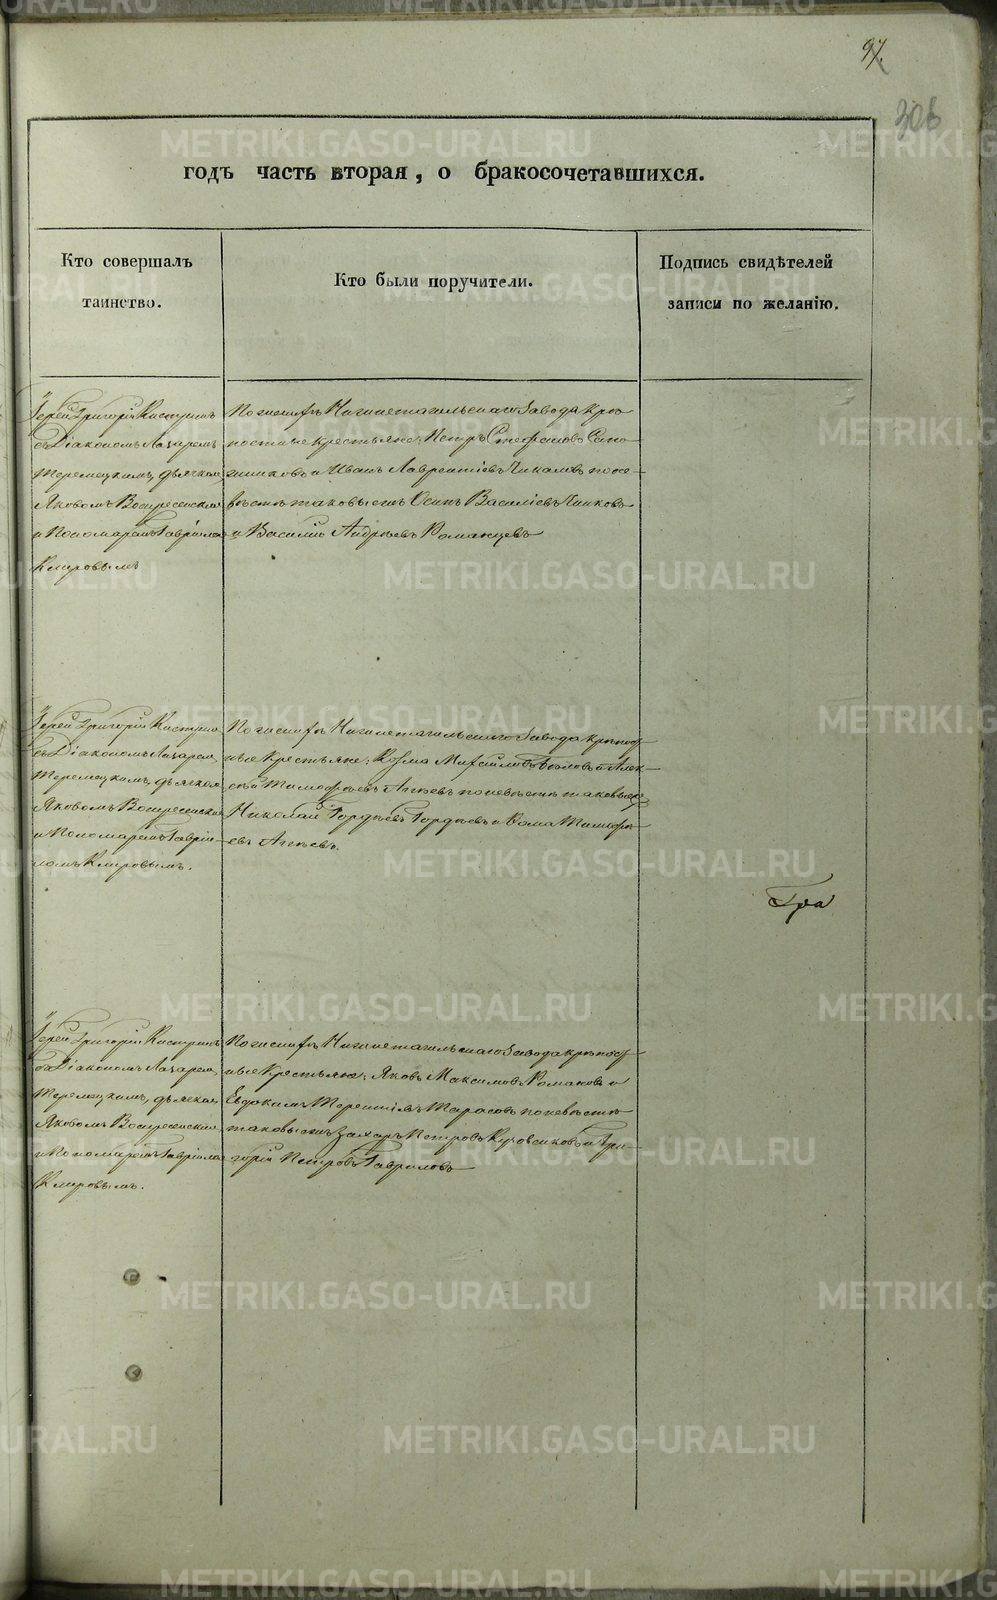 97.
306
годъ часть вторая, о бракосочетавшихся.
Кто совершалъ
таинство.
Кто были поручители.
Подпись свидѣтелей
записи по желанію.
Іерей Григорій
съ Діакономъ Лазаремъ
Теремецкимъ, дьячкомъ
Яковомъ Воскресенским
и Пономаремъ Гавріило
Кипровымъ
По женихѣ Нижнетагильскаго Завода крѣ
постные крестьяне, Петръ Стефановъ Сапо
жниковъ и Иванъ Лаврентіевъ по не
вѣстѣ таковыежъ Осипъ Василіевъ
и Василій Андреевъ Романцевъ
Іерей Григорій
съ Діакономъ Лазарем
Теремецкимъ, дьячком
Яковомъ Воскресенским
и Пономаремъ Гаврiи-
ломъ Кипровымъ.
По женихѣ Нижнетагильскаго Завода крѣпост
ные Крестьяне, Козма Михайловъ и Алек-
сѣй Тимофеевъ по невѣстѣ таковыежъ
Николай Гордѣевъ Гордѣевъ и Ѳома Тимофѣ
евъ
Гра
Іерей Григорій
съ Діакономъ Лазарем
Теремецкимъ, дьячком
Яковомъ Воскресенским
и Пономаремъ Гавріило
Кипровымъ.
По женихѣ Нижнетагильскаго Завода крѣпост
ные Крестьяне, Яковъ Максимовъ Романовъ и
Евдокимъ Терентіевъ Тарасовъ по невѣстѣ
таковыежъ Захаръ Петровъ и Гри-
горій Петровъ Гавриловъ
METRIKI.GASO-URAL.RU